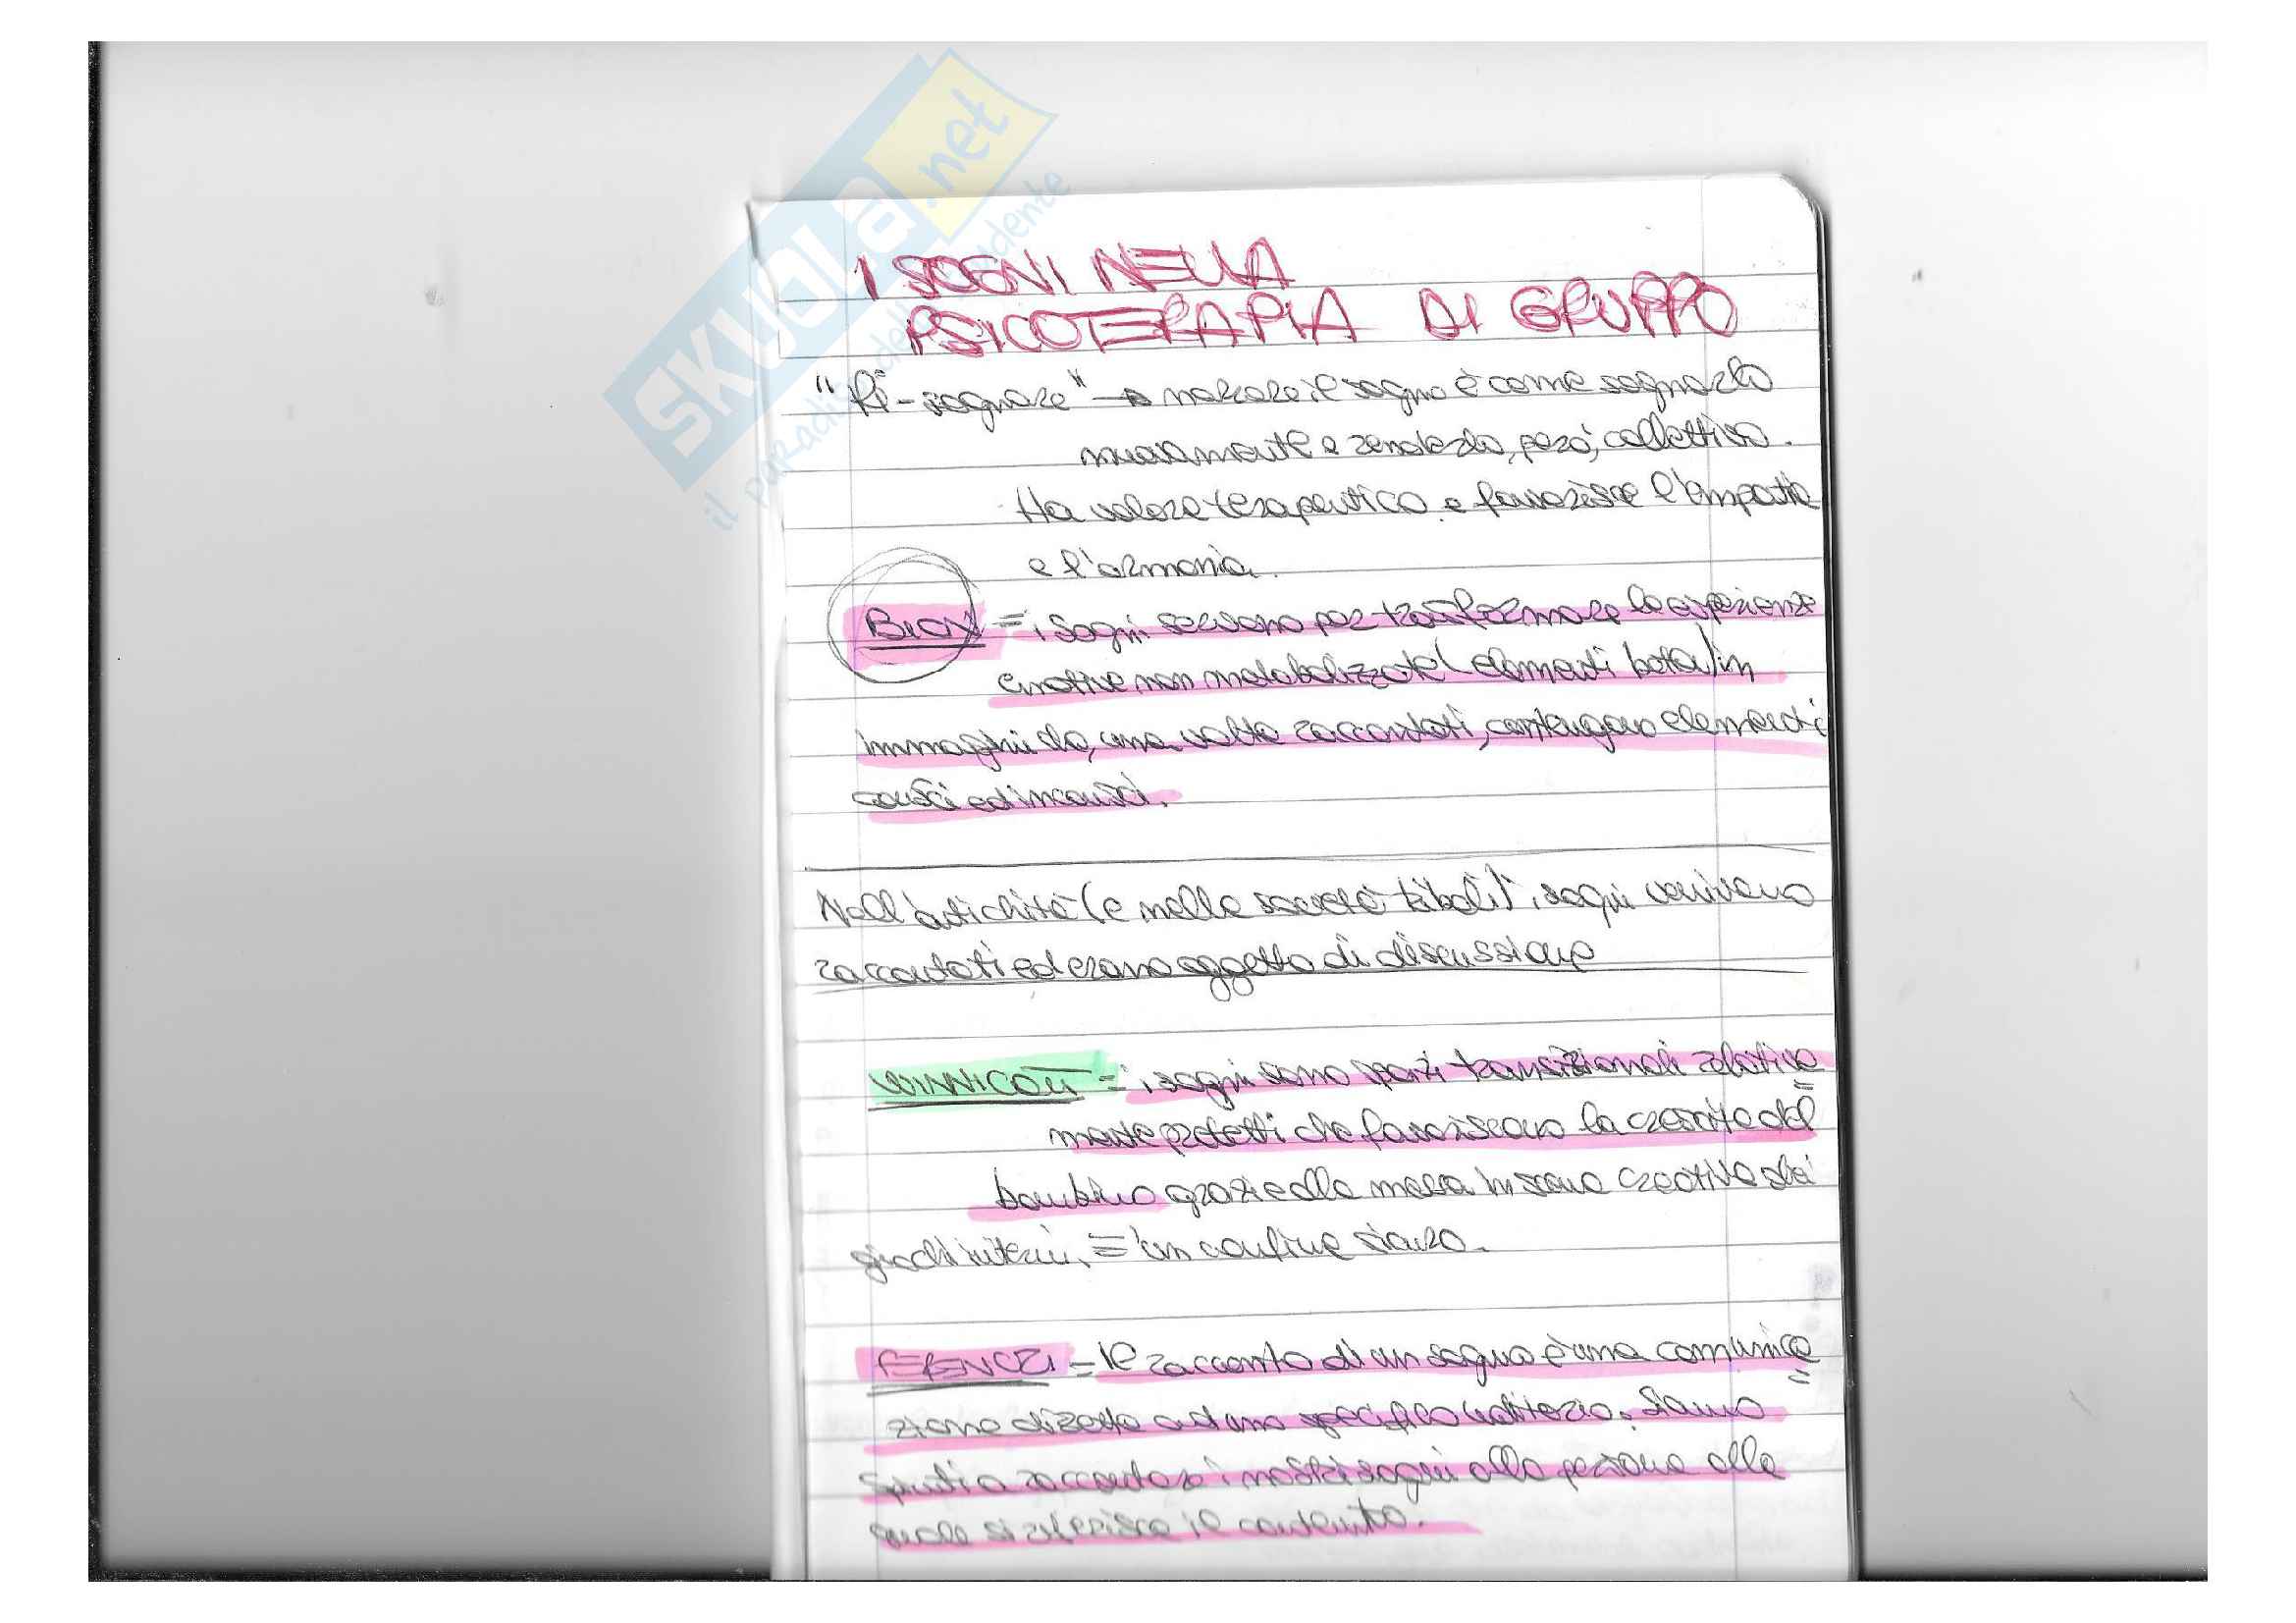 SKUOLA.net
il paradiso dello studente
I SOGNI NELLA
PSICOTERAPIA DI GRUPPO
"Ri-sognare" → narrare il sogno è come sognarlo
nuovamente e renderlo, però, collettivo.
Ha valore terapeutico e favorisce l'empatia
e l'armonia.
BION = i sogni servono per trasformare le esperienze
emotive non metabolizzate (elementi beta) in
immagini che, una volta raccontati, contengono elementi
consci ed inconsci.
Nell'antichità (e nelle società tribali) i sogni venivano
raccontati ed erano oggetto di discussione
WINNICOTT = i sogni sono spazi transizionali relativa=
mente protetti che favoriscono la crescita del
bambino grazie alla messa in scena creativa dei
giochi interni, = in confine sicuro.
FERENCZI = Il racconto di un sogno è una comunica=
zione diretta ad uno specifico uditorio. Siamo
spinti a raccontare i nostri sogni alla persona alla
quale si riferisce il contenuto.